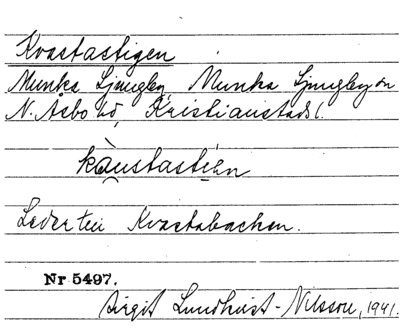 Kvastastigen
Munka Ljungby, Munka Ljungby sn
N. Åsbo hd, Kristianstads l.
kàustastiən
Leder till Kvastabacken.
Nr 5497.
Birgit Lundkvist-Nilsson, 1941.